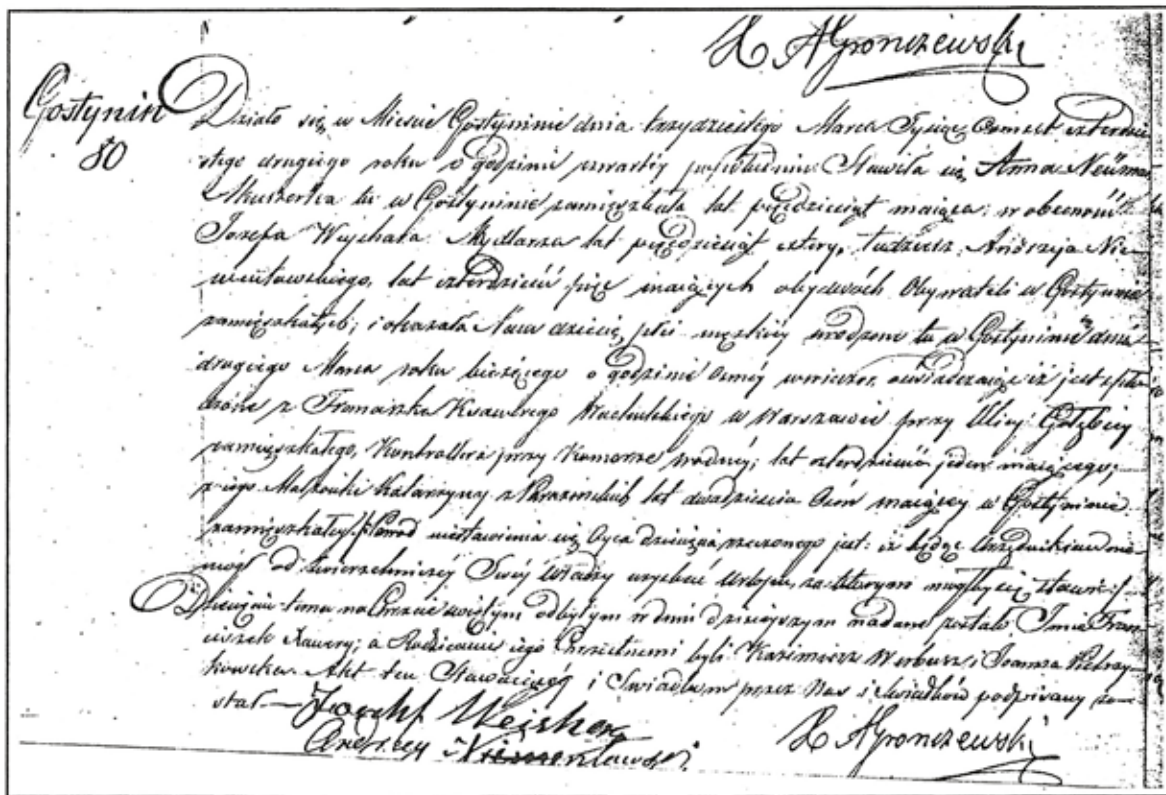 X. A Gronczewski
Gostynin
80
Działo się w Mieście Gostyninie dnia trzydziestego Marca Tysiąc Osmset czterdzie
stego drugiego roku o godzinie czwartéj popołudniu Stawiła się Anna Neüman
Akuszerka tu w Gostyninie zamięszkała lat pięćdziesiąt maiąca; w obecności
Jozefa Wejchata Mydlarza lat pięćdziesiąt cztery, tudzież Andrzeja Nie-
wentowskiego, lat czterdzieści pięć maiących obydwóch Obywateli w Gostyninie
zamięszkałych; i okazała Nam dziecię płci męzkiéj urodzone tu w Gostyninie dnia
drugiego Marca roku bieżącego o godzinie Osméj wieczor, oświadczaiąc iż jest spło-
dzone z Franciszka Ksawerego w Warszawie przy Ulicy Gołębiéj
zamięszkałego, Kontrollera przy Komorze wodnéj; lat czterdzieści jeden maiącego;
z iego Małżonki Katarzyny z lat dwadzieścia Osm maiącéj w Gostyninie
zamięszkałey. Powod niestawienia się Oyca dziecięcia rzeczonego jest: iż będąc Urzędnikiem nie
mógł od zwierzchniczéj Swéj Władzy uzyskać Urlopu, za którym mogłby się stawić.
Dziecięciu temu na Chrzcie świętym odbytym w dniu dzisiejszym nadane zostało Imie Fran-
ciszek Xawery; a Rodzicami iego Chrzestnemi byli Kazimierz i Joanna Pietrzy-
kowska. Akt ten Stawaiącéj i Świadkom przez Nas i świadków podpisany zo-
stał —
Jozeht Weicher
Andrzey Niewentowski
X. A Gronczewski